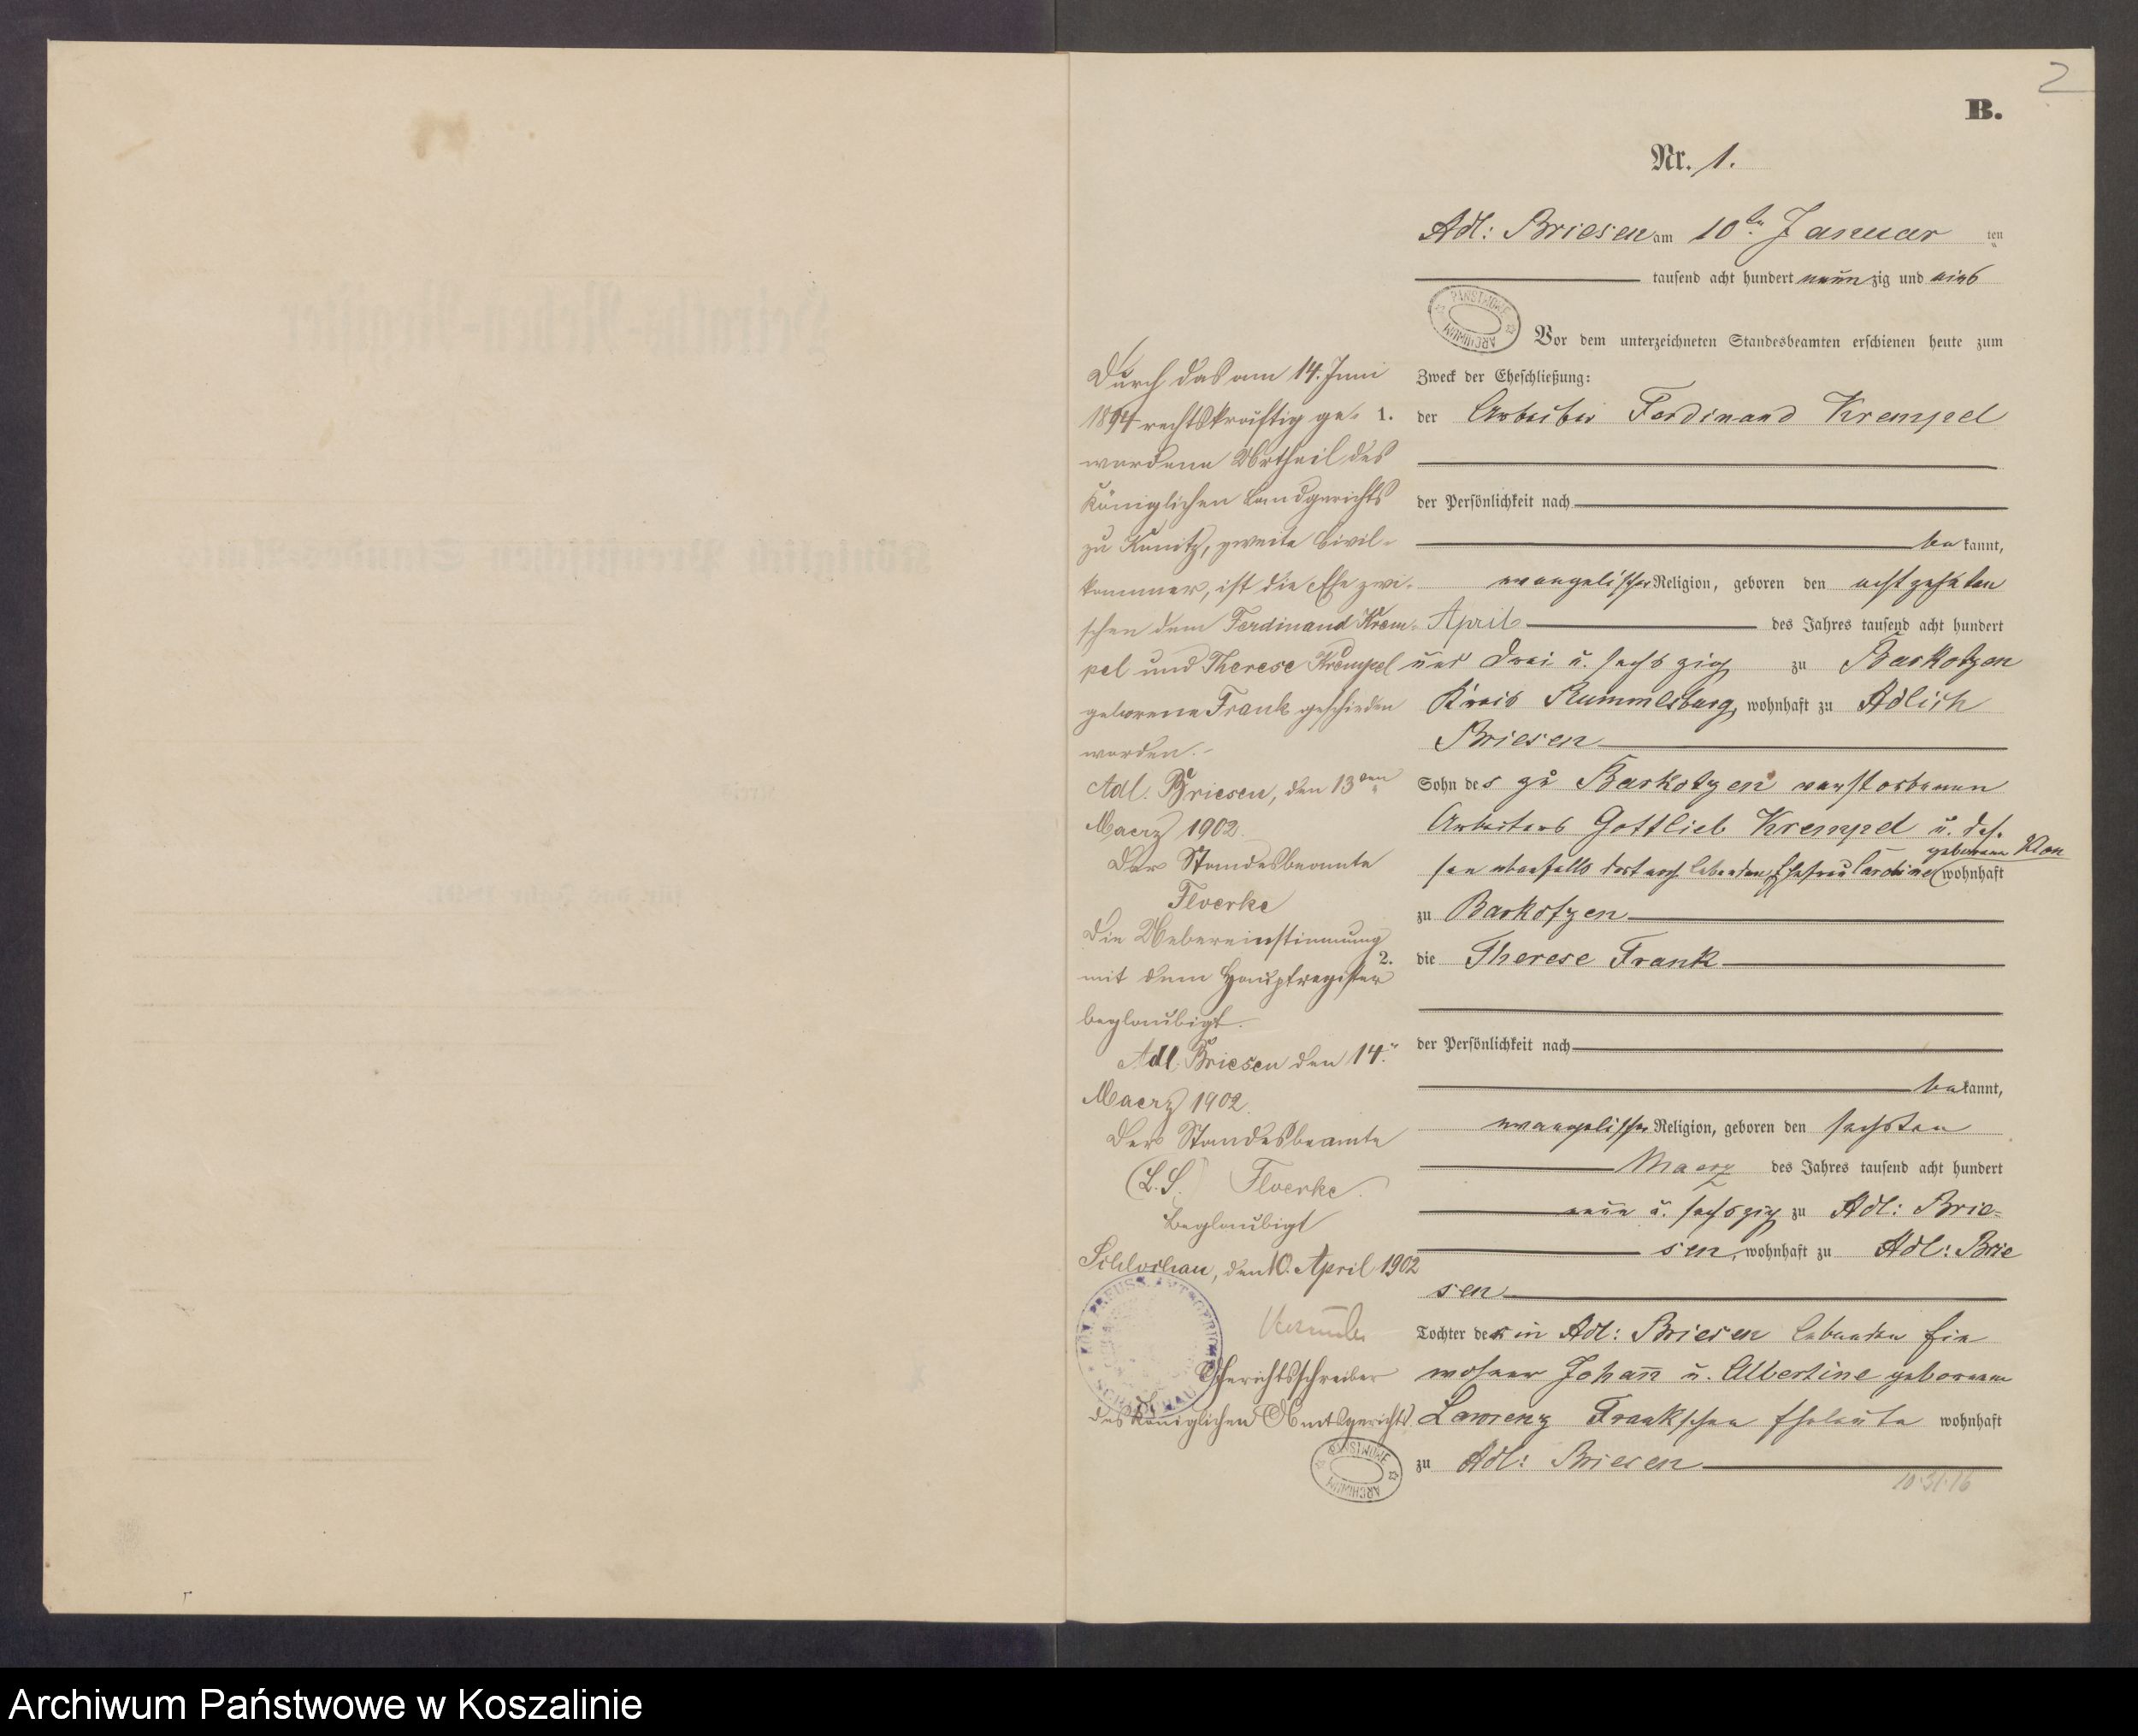 2
B.
Nr. 1.
Adl: Briesen am 10ten Januar ten
tausend acht hundert neunzig und eins
PAŃSTWOWE ARCHIWUM
Vor dem unterzeichneten Standesbeamten erschienen heute zum
Zweck der Eheschließung:
1. der Arbeiter Ferdinand Krempel
der Persönlichkeit nach
bekannt,
evangelischer Religion, geboren den achtzehnten
April des Jahres tausend acht hundert
und drei u. sechszig zu Barkotzen
Kreis Rummelsburg, wohnhaft zu Adlich
Briesen
Sohn des zu Barkotzen verstorbenen
Arbeiters Gottlieb Krempel u. des-
geborene
sen ebenfalls dort noch lebenden Ehefrau Caroline wohnhaft
zu Barkotzen
2. die Therese Frank
der Persönlichkeit nach
bekannt,
evangelischer Religion, geboren den sechsten
Maerz des Jahres tausend acht hundert
neun u. sechszig zu Adl: Brie-
sen, wohnhaft zu Adl: Brie
sen
Tochter der in Adl: Briesen lebenden Ein
wohner Johann u. Albertine geborenen
Lawrenz Frankschen Eheleute wohnhaft
zu Adl: Briesen
10·31·16
Durch das am 14. Juni
1894 rechtskräftig ge-
wordene Urtheil des
Königlichen Landgerichts
zu Konitz, zweite Civil-
kammer, ist die Ehe zwi-
schen dem Ferdinand Krem-
pel und Therese Krempel
geborene Frank geschieden
worden.-
Adl. Briesen, den 13ten
Maerz 1902.
Der Standesbeamte
Floerke
Die Uebereinstimmung
mit dem Hauptregister
beglaubigt.
Adl. Briesen den 14.
Maerz 1902.
Der Standesbeamte
(L.S.) Floerke.
Beglaubigt
Schlochau, den 10. April 1902
KÖN. PREUSS. AMTSGERICHT SCHLOCHAU
Gerichtsschreiber
des Königlichen Amtsgerichts.
PAŃSTWOWE ARCHIWUM
Archiwum Państwowe w Koszalinie